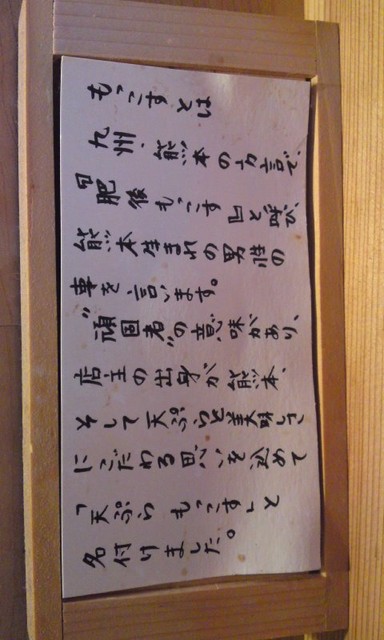 もっこすとは
九州、熊本の方言で、
『肥後もっこす』と呼び、
熊本生まれの男性の
事を言います。
"頑固者"の意味があり、
店主の出身が熊本、
そして天ぷらと美味しさ
にこだわる思いを込めて
「天ぷら もっこす」と
名付けました。